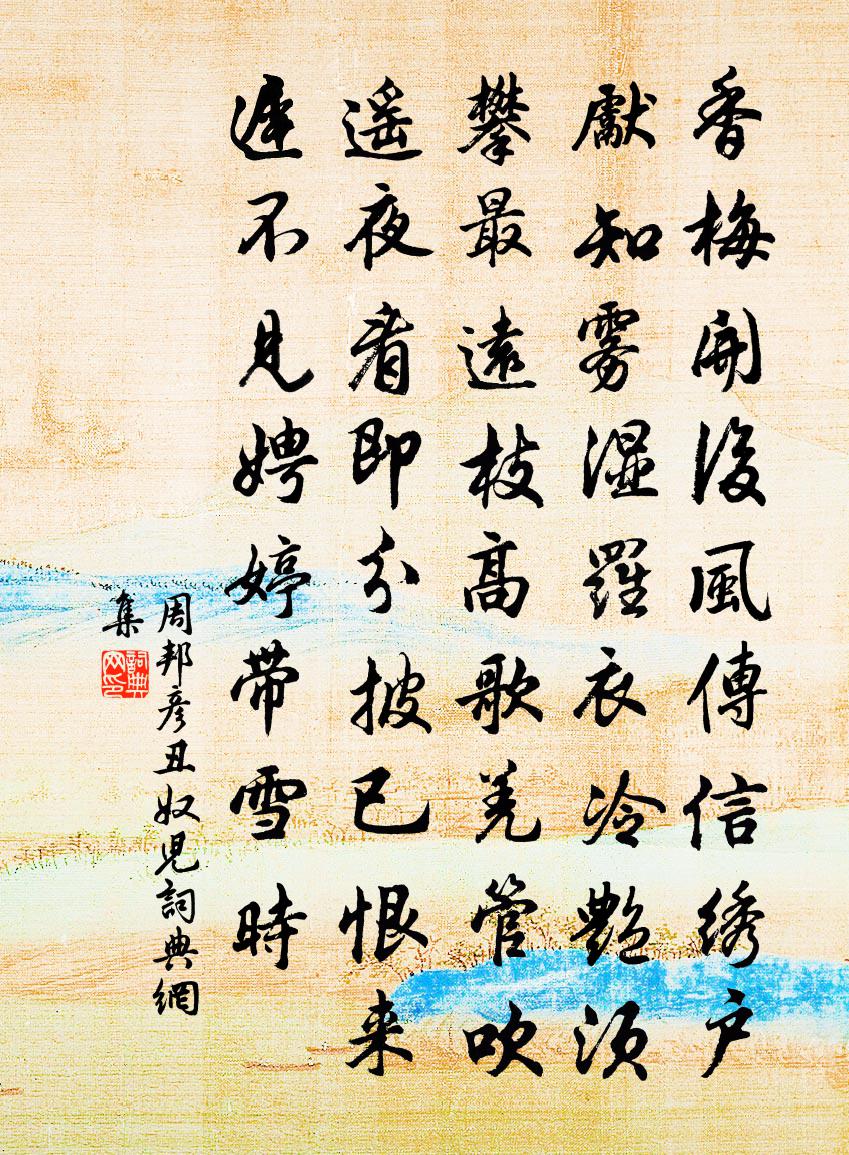 香梅開後風傳信绣户
獻知霧湿羅衣冷艷须
攀最遠枝高歌羌管吹
遥夜看即分披已恨来
遲不見娉婷带雪時
周邦彦丑奴児詞典網
集
詞典网印